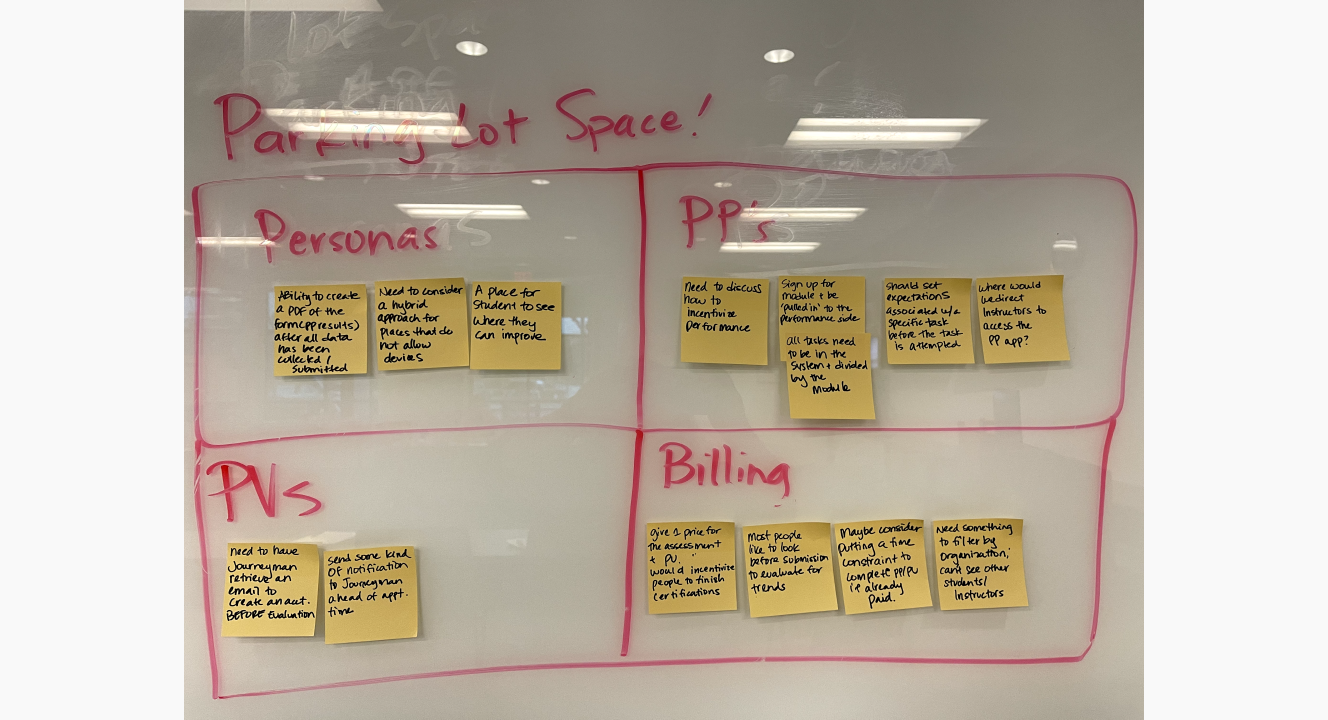 Parking Lot Space!
Personas
Ability to create
a PDF of the
form(pp results)
after all data
has been
collected /
Submitted
Need to consider
a hybrid
approach for
places that do
not allow
devices
A place for
student to see
where they
can improve
PP's
need to discuss
how to
incentivize
performance
Sign up for
module + be
'pulled in' to the
performance side
all tasks need
to be in the
system + divided
by the
Module
should set
expectations
associated w/a
specific task
before the task
is attempted
where would
we direct
instructors to
access the
PP app?
PVs
need to have
Journeyman
retrieve an
email to
create an acct.
BEFORE Evaluation
send some kind
of notification
to Journeyman
ahead of appt.
time
Billing
give 1 price for
the assessment
+ PV.
would incentivize
people to finish
certifications
Most people
like to look
before submission
to evaluate for
trends
Maybe consider
putting a time
constraint to
complete PP/PV
if already
paid.
Need something
to filter by
organization;
can't see other
students/
Instructors